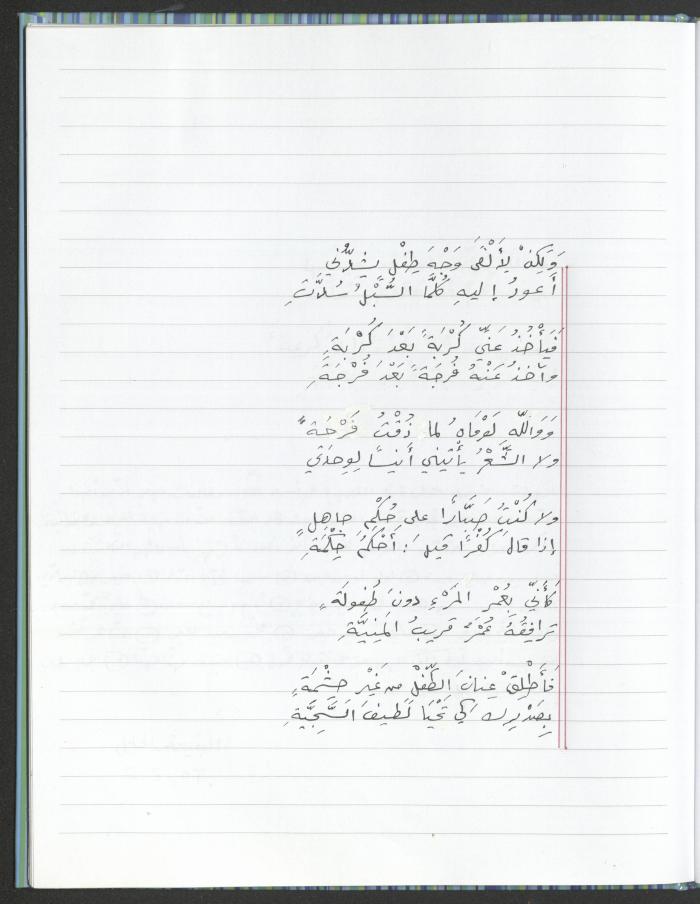 وَلَكِنْ لِأَلْقَى وَجْهَ طِفْلٍ يَشُدُّنِي
أَعودُ إليهِ كُلَّمَا السُّبْلُ سُدَّتِ
فَيَأْخُذُ عَنِّي كُرْبَةً بَعْدَ كُرْبَةٍ
وآخذُ عَنْهُ فُرجَةً بَعْدَ فُرْجَةِ
وَوَاللّهِ لَوْلَاهُ لما ذُقْتُ فَرْحَةً
ولا الشِّعْرُ يأتيني أَنيسًا لِوحدَتي
ولا كُنْتُ صَبَّارًا على حُكْمِ جاهلٍ
إذا قالَ كُفْرًا قيلَ: أَحْكَمُ حِكْمَةِ
كأَنِّي بِعُمْرِ المَرْءِ دونَ طُفولَةٍ
تُرافِقُهُ عُمْرٌ قريبُ المَنِيَّةِ
فَأَطْلِقْ عِنانَ الطِّفْلِ من غَيْرِ حِشْمَةٍ
بِصَدْرِكَ كَي تَحْيَا لَطيفَ السَّجِيَّةِ